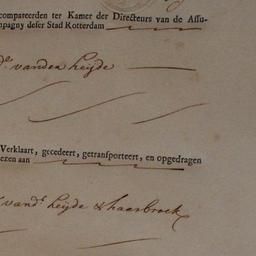 compareerden ter Kamer der Directeurs van de Assu-
mpagny deser Stad Rotterdam
vanden Heyde
Verklaart, gecedeert, getransporteert, en opgedragen
ezen aan
vand.^e Heyde & haasbroek